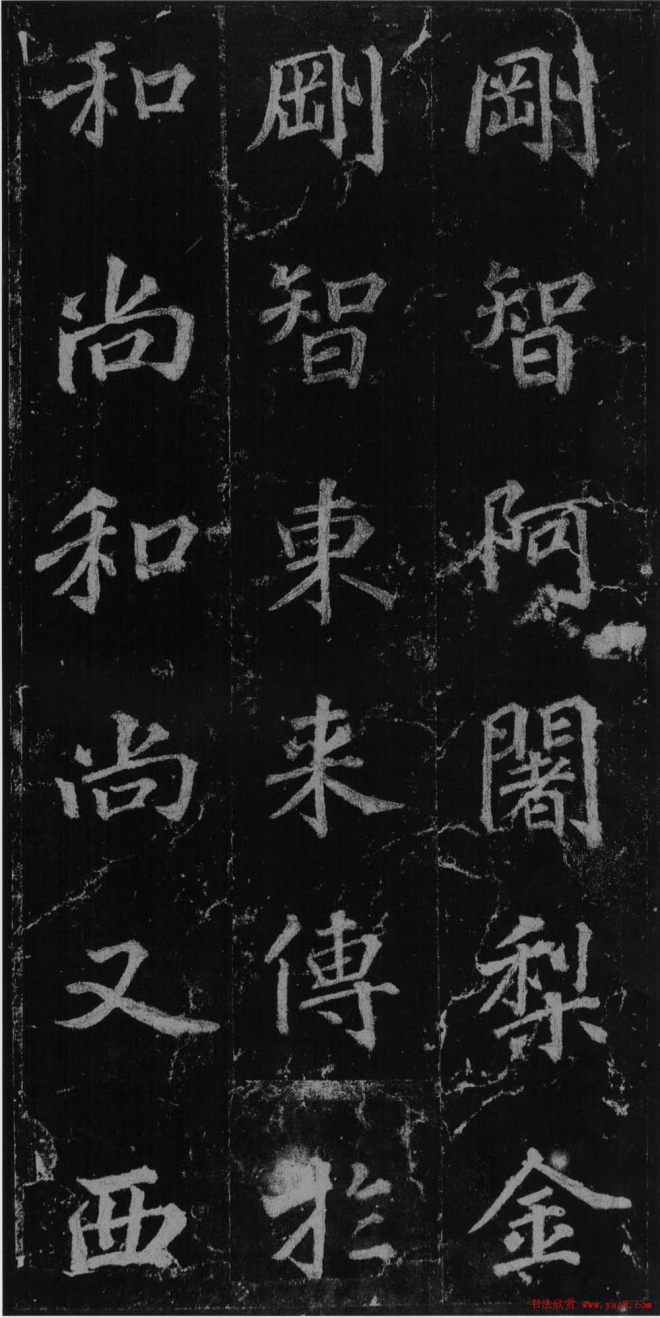 剛智阿闍梨金
剛智東来傳於
和尚和尚又西
书法欣赏 www.yac8.com